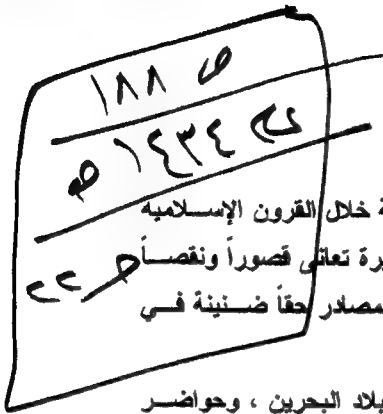 ص ١٨٨
١٤٣٤ هـ
٢٢
ة خلال القرون الإسلامية
يرة تعاني قصوراً ونقصاً
مصادر حقاً ضنينة في
بلاد البحرين ، وحواضر